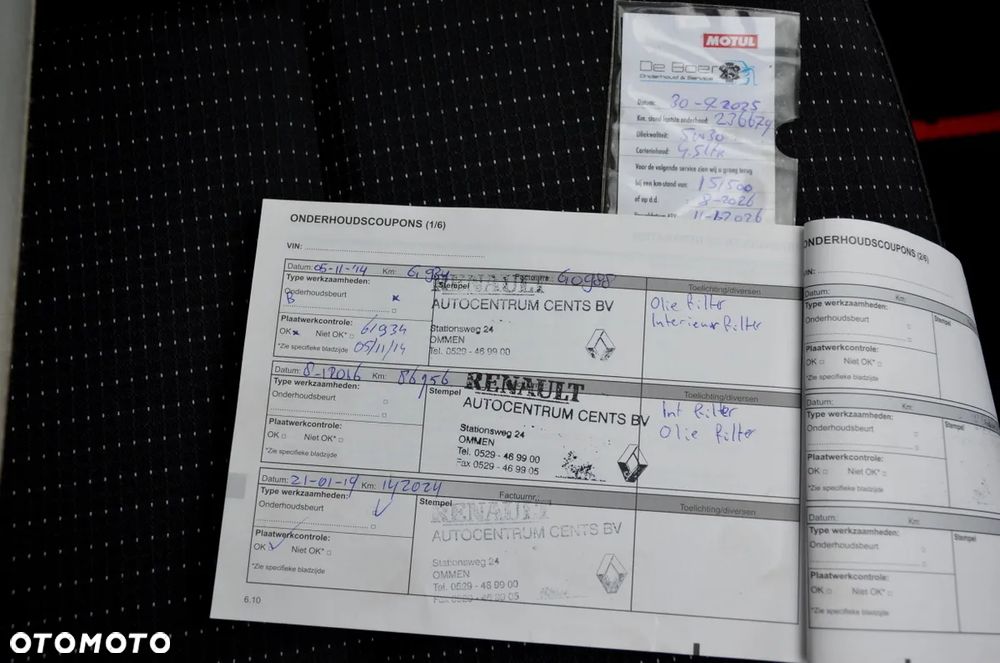 MOTUL
De Boer
Onderhoud & Service
Datum: 30-9-2025
Km. stand laatste onderhoud: 236679
Oliekwaliteit: 5w30
Carterinhoud: 4.5 ltr
Voor de volgende service zien wij u graag terug
bij een km-stand van: 15/500
of op d.d. 8-2026
ONDERHOUDSCOUPONS (1/6)
VIN:
Datum: 05-11-'14 Km: Factuurnr.:
Type werkzaamheden: Stempel Toelichting/diversen
Onderhoudsbeurt
B x
RENAULT
AUTOCENTRUM CENTS BV
Stationsweg 24
OMMEN
Tel. 0529 - 46 99 00
Olie filter
Interieur filter
Plaatwerkcontrole: 61934
OK x Niet OK*
*Zie specifieke bladzijde 05/11/14
Datum: Km: 86956
Type werkzaamheden: Stempel Toelichting/diversen
Onderhoudsbeurt
RENAULT
AUTOCENTRUM CENTS BV
Stationsweg 24
OMMEN
Tel. 0529 - 46 99 00
Fax 0529 - 46 99 05
Int filter
Olie filter
Plaatwerkcontrole:
OK Niet OK*
*Zie specifieke bladzijde
Datum: 21-01-19 Km: 142024 Factuurnr.:
Type werkzaamheden: Stempel Toelichting/diversen
Onderhoudsbeurt
RENAULT
AUTOCENTRUM CENTS BV
Stationsweg 24
OMMEN
Tel. 0529 - 46 99 00
Fax 0529 - 46 99 05
Plaatwerkcontrole:
OK Niet OK*
*Zie specifieke bladzijde
6.10
ONDERHOUDSCOUPONS (2/6)
VIN:
Datum: Km:
Type werkzaamheden: Stempel
Onderhoudsbeurt
Plaatwerkcontrole:
OK Niet OK*
*Zie specifieke bladzijde
Datum: Km:
Type werkzaamheden: Stempel
Onderhoudsbeurt
Plaatwerkcontrole:
OK Niet OK*
*Zie specifieke bladzijde
Datum: Km:
Type werkzaamheden: Stempel
Onderhoudsbeurt
Plaatwerkcontrole:
OK Niet OK*
*Zie specifieke bladzijde
OTOMOTO